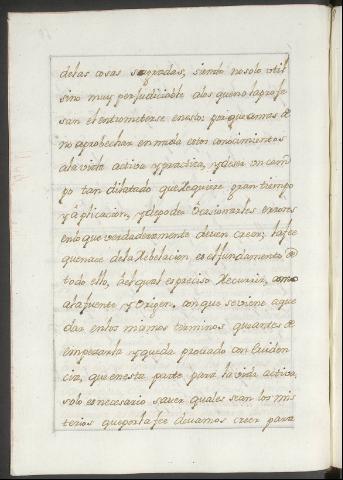 delas cosas sagradas, siendo nosolo util
sino muy perjudiciable alos queno laprofe
san el entrometerse enesto: porque amas de
no aprobechar en nada estos conocimientos
ala vida activa y practica, y deser un cam
po tan dilatado que Requiere gran tiempo
y aplicacion, y depoder Ocasionarles errores
enlo que verdaderamente deven creer; lafee
quenace dela Rebelacion, es el fundamento de
todo ello, hel qual es preciso Recurrir, como
ala fuente y Origen, con que seviene aque
dar enlos mismos terminos que antes de
empezarla y queda provado con Eviden
cia, que enesta parte para la vida activa,
solo es necesario saver quales sean los mis
terios que por la fee devamos creer para